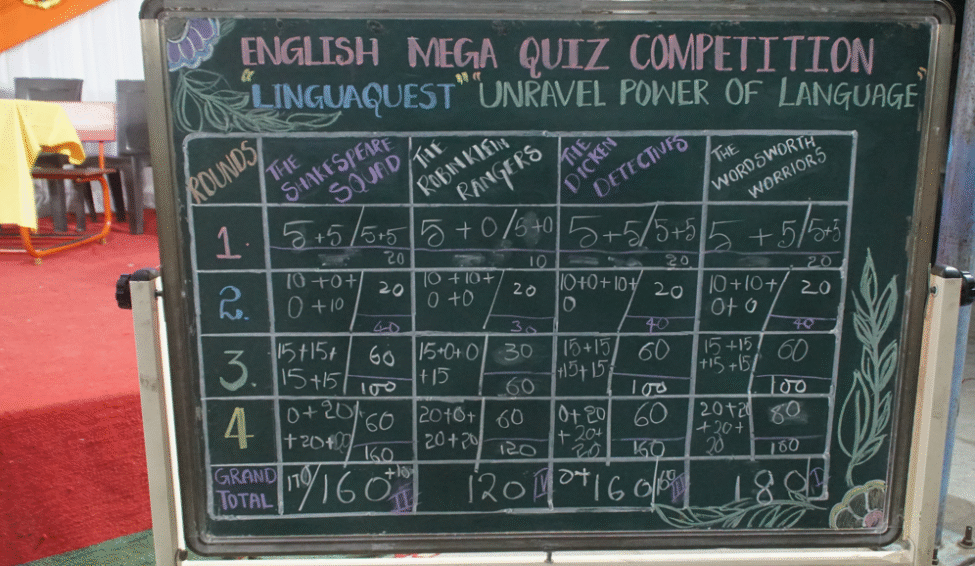 ENGLISH MEGA QUIZ COMPETITION
"LINGUAQUEST" "UNRAVEL POWER OF LANGUAGE"
ROUNDS
THE SHAKESPEARE SQUAD
THE ROBIN KLEIN RANGERS
THE DICKEN DETECTIVES
THE WORDSWORTH WORRIORS
1.
5+5/5+5
20
5+0/5+0
10
5+5/5+5
20
5+5/5+5
20
2.
10+0+
0+10
20
40
10+10+
0+0
20
30
10+0+10+
0
20
40
10+10+
0+0
20
40
3.
15+15+
15+15
60
100
15+0+0
+15
30
60
15+15
+15+15
60
100
15+15
+15+15
60
100
4
0+20
+20+20
60
160
20+0+
20+20
60
120
0+20
+20+
20
60
160
20+20
+20+
20
80
180
GRAND TOTAL
170/160+10 II
120 IV
0+160 III
180 I